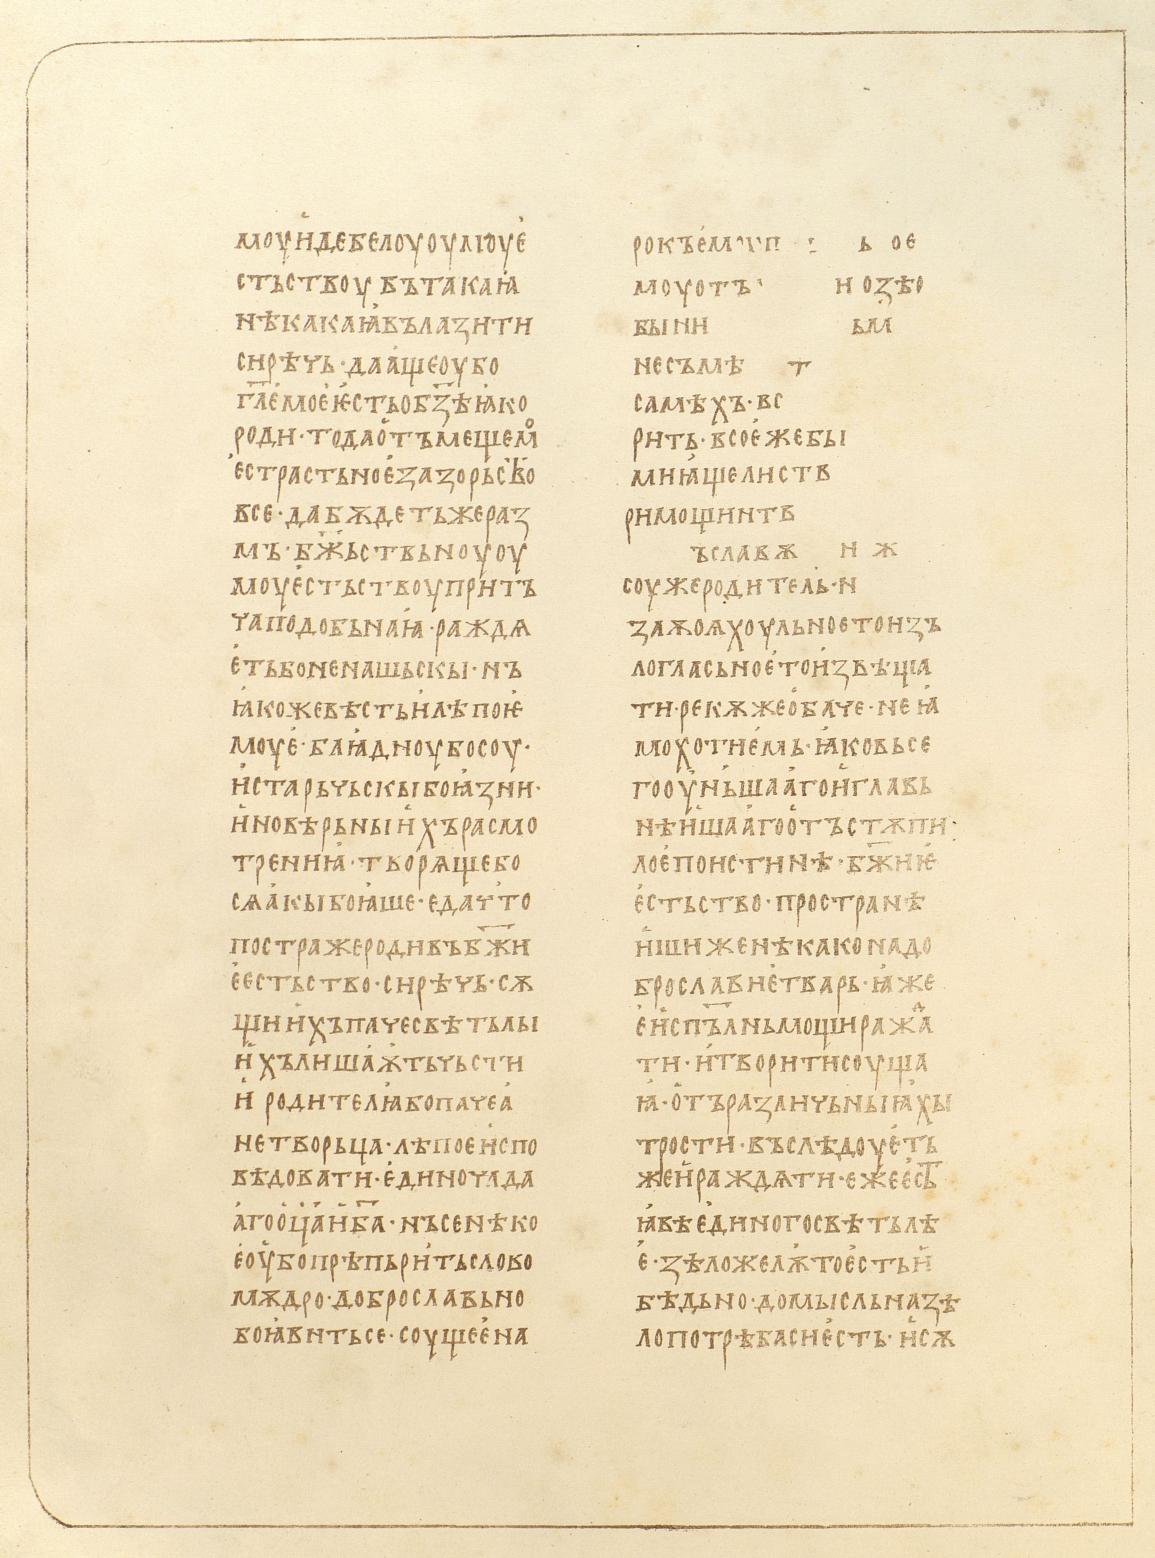 моуꙇ҆дебелоуоулюуе҆
стьствоу вътакаꙗ҆
нѣкакаꙗ҆вълазити
сирѣчь·даа҆щеоубо
гл҃е҆мое҆ѥ҆стьобз҃ѣꙗ҆ко
роди·тодао҆тъмещемⷪ
е҆страстьное҆зазорьсⷡ҇о
все·дабѫдетьжераз
мъ·бж҃ьствьноуоу
моуе҆стьствоуприть
чаподобьнаꙗ҆·раждѧ
е҆тьбоненашьскы·нъ
ꙗ҆кожевѣстьи҆лѣпоѥ҆
моуе҆·блꙗ҆дноубосоу·
и҆старьчьскыбоꙗ҆зни·
и҆новѣрьныи҆хърасмо
трениꙗ҆·творѧщебо
сѧа҆кыбоꙗ҆ше·едачто
постражеродивъбж҃и
е҆естьство·сирѣчь·сѫ
щии҆хъпачесвѣтьлы
и҆хълишаѭ҆тьчьсти
и҆ родителꙗ҆бопачеа҆
нетворьца·лѣпоеи҆спо
вѣдовати·е҆диночада
а҆гоо҆ц҃аи҆б҃а·нъсенѣко
е҆оу҆бо҆прѣпьри҆тьслово
мѫдро·доброславьно
воꙗ҆витьсе·соущее҆на
рокъе҆м п ь ое
моуотъ н озѣо
быни ьм
несъмѣ т
самѣхъ·вс
рить·всое҆жебы
миꙗ҆щелиств
римощинтв
ъславѫ н ж
соужеродитель·н
заѫоѧхоульноетоизъ
логласьное҆тои҆звѣща
ти·рекѫжео҆баче·неꙗ҆
мохотие҆мь·ꙗ҆ковьсе
гооу҆ньшаа҆гои҆главь
нѣи҆шаа҆гоо҆тъстѫпи·
лое҆поистинѣ·бж҃иѥ҆
е҆стьство·простра҆нѣ
и҆шиженѣкаконадо
брославие҆тварь·ꙗ҆же
е҆и҆спъ҃лньмощиражⷣа҆
ти·и҆творитисоуща
ꙗ҆·о҆търазличьныꙗ҆хы
трости·въслѣдоуе҆ть
жеи҆раждѧти·ежее҆с҃ть
ꙗ҆вѣе҆диногосвѣтьлѣ
е҆·зѣложелѧ҆тое҆стьи҆
бѣдьно·домысльназѣ
лопотрѣбасне҆сть·и҆сѫ